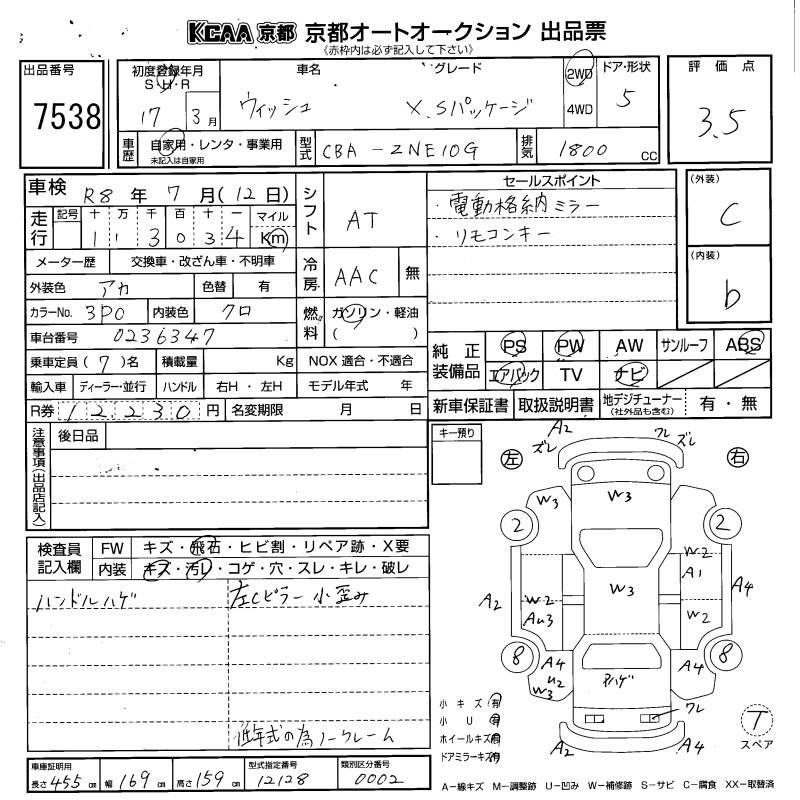 KCAA 京都 京都オートオークション 出品票
《赤枠内は必ず記入して下さい》
出品番号
7538
初度登録年月 車名 グレード 2WD ドア・形状
S・H・R
17 3月 ウィッシュ X.Sパッケージ 4WD 5
車歴 自家用・レンタ・事業用 型式 CBA-ZNE10G 排気 1800 CC
未記入は自家用
評価点
3.5
車検 R8年 7月(12日)
走行 記号 十 万 千 百 十 一 マイル
1 1 3 0 3 4 Km
メーター歴 交換車・改ざん車・不明車
外装色 アカ 色替 有
カラーNo. 3P0 内装色 クロ
車台番号 0236347
乗車定員(7)名 積載量 Kg NOX 適合・不適合
輸入車 ディーラー・並行 ハンドル 右H・左H モデル年式 年
R券 12230円 名変期限 月 日
シフト AT
冷房 AAC 無
燃料 ガソリン・軽油
( )
セールスポイント
・電動格納ミラー
・リモコンキー
(外装)
C
(内装)
b
純正装備品 PS PW AW サンルーフ ABS
エアバック TV ナビ
新車保証書 取扱説明書 地デジチューナー(社外品も含む) 有・無
注意事項(出品店記入)
後日品
検査員記入欄 FW キズ・飛石・ヒビ割・リペア跡・X要
内装 キズ・汚レ・コゲ・穴・スレ・キレ・破レ
ハンドルハゲ 左Cピラー小歪み
低年式の為ノークレーム
キー預り
左 右
A2 ズレ ワレ ズレ
W3 W3
2 2
W2 A1
A2 W2 AU3 W3 W2 A4
8 8
A4 U2 W3 Pハゲ A4
ワレ
A2 A4
小キズ 有
小U 有
ホイールキズ 有
ドアミラーキズ 有
T
スペア
車庫証明用 長さ 455cm 幅 169cm 高さ 159cm
型式指定番号 12128
類別区分番号 0002
A－線キズ M－調整跡 U－凹み W－補修跡 S－サビ C－腐食 XX－取替済